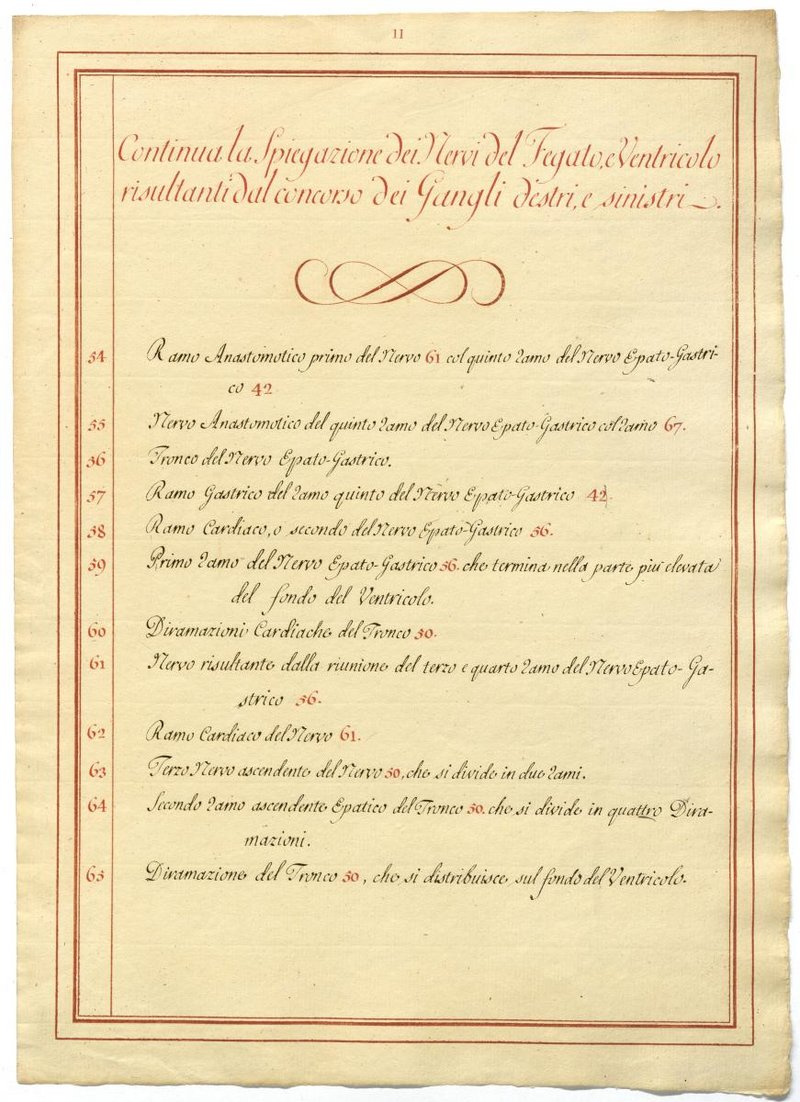 II
Continua la Spiegazione dei Nervi del Fegato, e Ventricolo
risultanti dal concorso dei Gangli destri, e sinistri.
54 Ramo Anastomotico primo del Nervo 61 col quinto ramo del Nervo Epato-Gastri-
co 42
55 Nervo Anastomotico del quinto ramo del Nervo Epato-Gastrico col ramo 67.
56 Tronco del Nervo Epato-Gastrico.
57 Ramo Gastrico del ramo quinto del Nervo Epato-Gastrico 42.
58 Ramo Cardiaco, o secondo del Nervo Epato-Gastrico 56.
59 Primo ramo del Nervo Epato-Gastrico 56. che termina nella parte più elevata
del fondo del Ventricolo.
60 Diramazioni Cardiache del Tronco 50.
61 Nervo risultante dalla riunione del terzo e quarto ramo del Nervo Epato-Ga-
strico 56.
62 Ramo Cardiaco del Nervo 61.
63 Terzo Nervo ascendente del Nervo 50, che si divide in due rami.
64 Secondo ramo ascendente Epatico del Tronco 50. che si divide in quattro Dira-
mazioni.
65 Diramazione del Tronco 50, che si distribuisce sul fondo del Ventricolo.